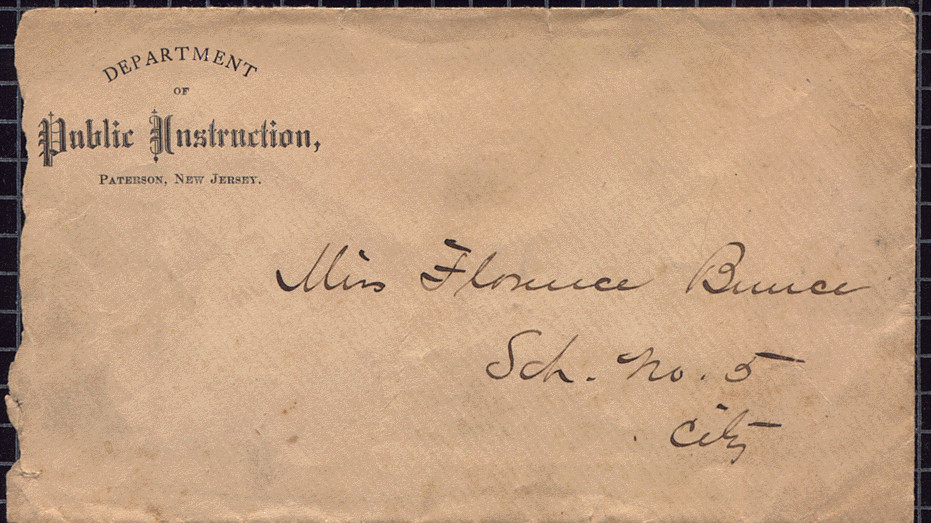 DEPARTMENT
OF
Public Instruction,
PATERSON, NEW JERSEY.
Miss Florence Bunce
Sch. No. 5
City